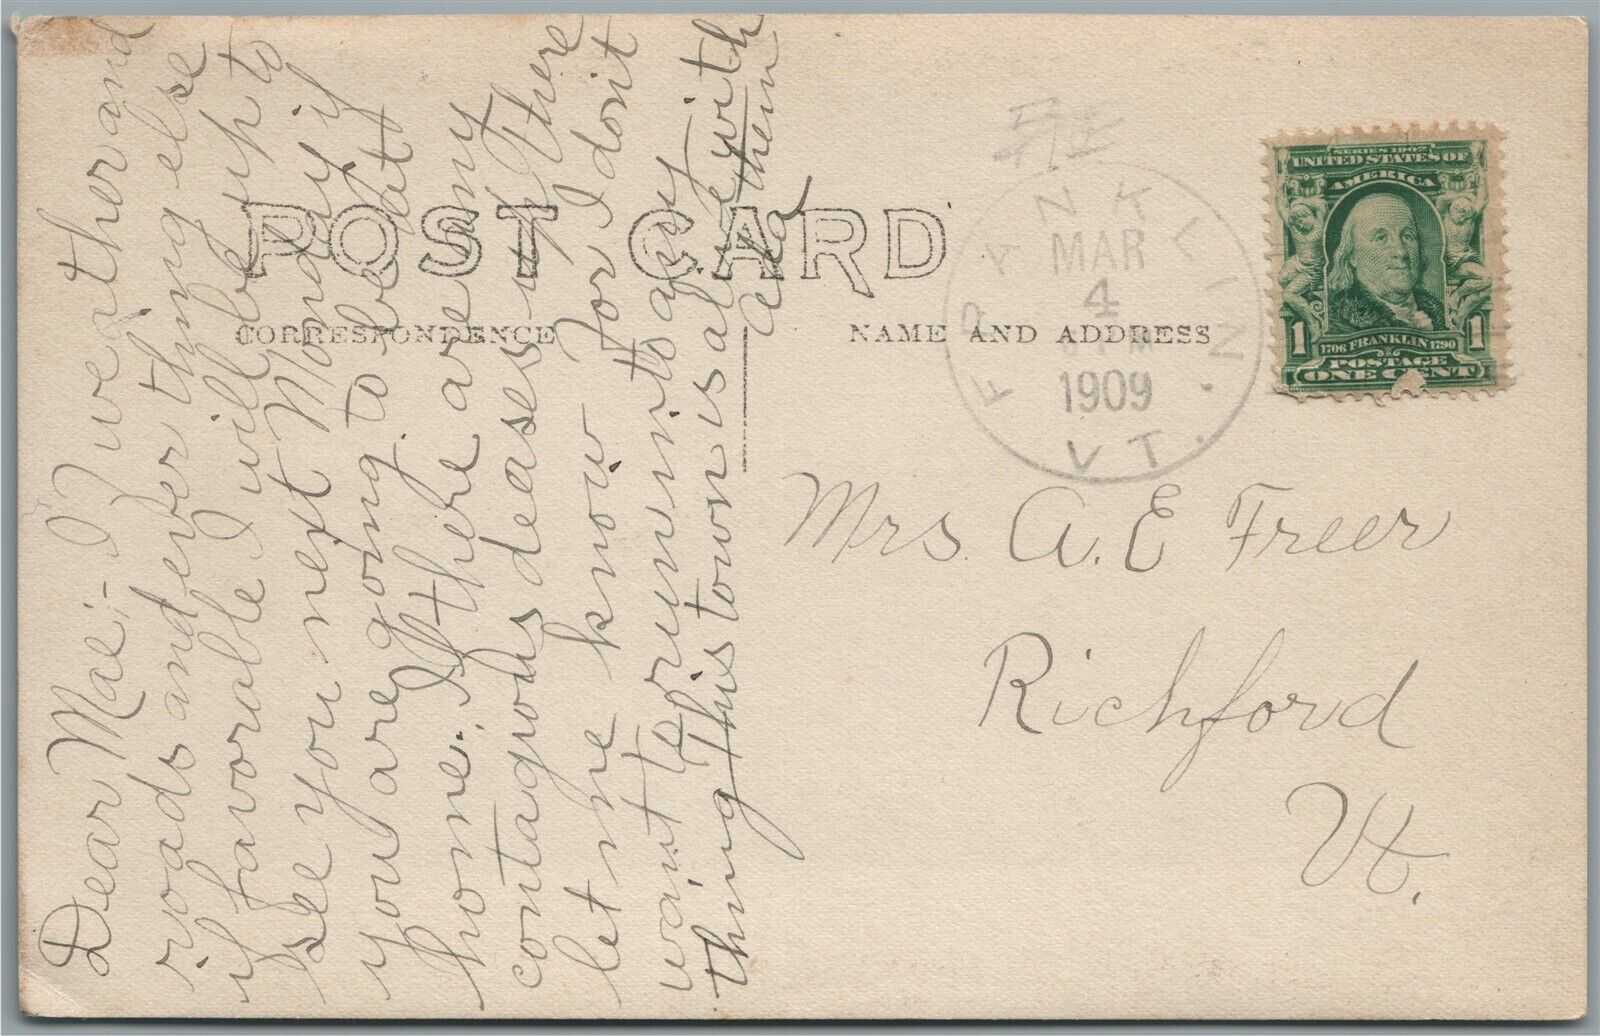 POST CARD
CORRESPONDENCE
NAME AND ADDRESS
FRANKLIN.
MAR
4
1909
VT.
SERIES 1902
UNITED STATES OF
AMERICA
1 1
1706 FRANKLIN 1790
POSTAGE
ONE CENT
Dear Mae;- If weather and
roads and ever thing else
if favorable I will be up to
see you next Monday if
you are going to be at
home. If there are any
contagous deases up There
let me know For I don't
want to run into any
thing This town is alive with
them
and
Mrs. A. E Freer
Richford
Vt.